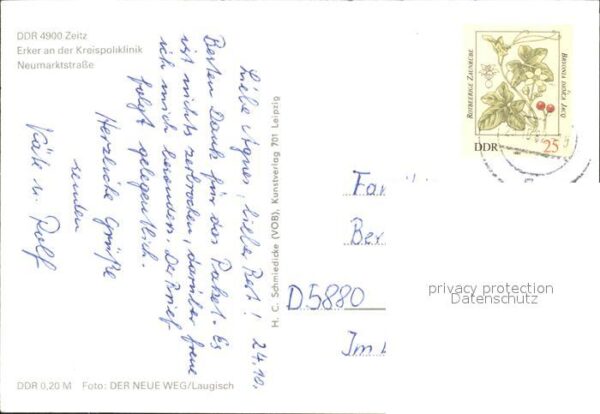 DDR 4900 Zeitz
Erker an der Kreispoliklinik
Neumarktstraße
Liebe Agnes, lieber Bert! 24.10.
Besten Dank für das Paket. Es
ist nichts zerbrochen, darüber freue
ich mich besonders. Der Brief
folgt gelegentlich.
Herzliche Grüße
senden
Käte u. Rolf
H. C. Schmiedicke (VOB), Kunstverlag 701 Leipzig
ROTBEERIGE ZAUNRÜBE
BRYONIA DIOICA JACQ
DDR 25
Fam
Ber
D5880
Im
privacy protection
Datenschutz
DDR 0,20 M Foto: DER NEUE WEG/Laugisch